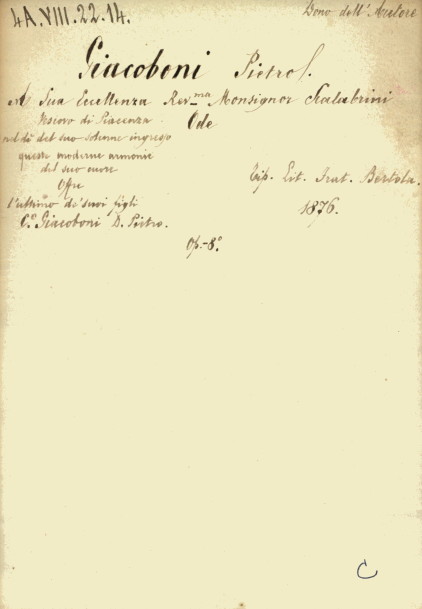 4A.VIII.22.14.
Dono dell' Autore
Giacoboni Pietro.
A Sua Eccellenza Rev.ma Monsignor Scalabrini
Vescovo di Piacenza
Ode
nel dì del suo solenne ingresso
queste moderne armonie
del suo cuore
Offre
l'ultimo de' suoi figli
C.o Giacoboni D. Pietro.
Tip. Lit. Frat. Bertola.
1876.
Op.-8.o
C